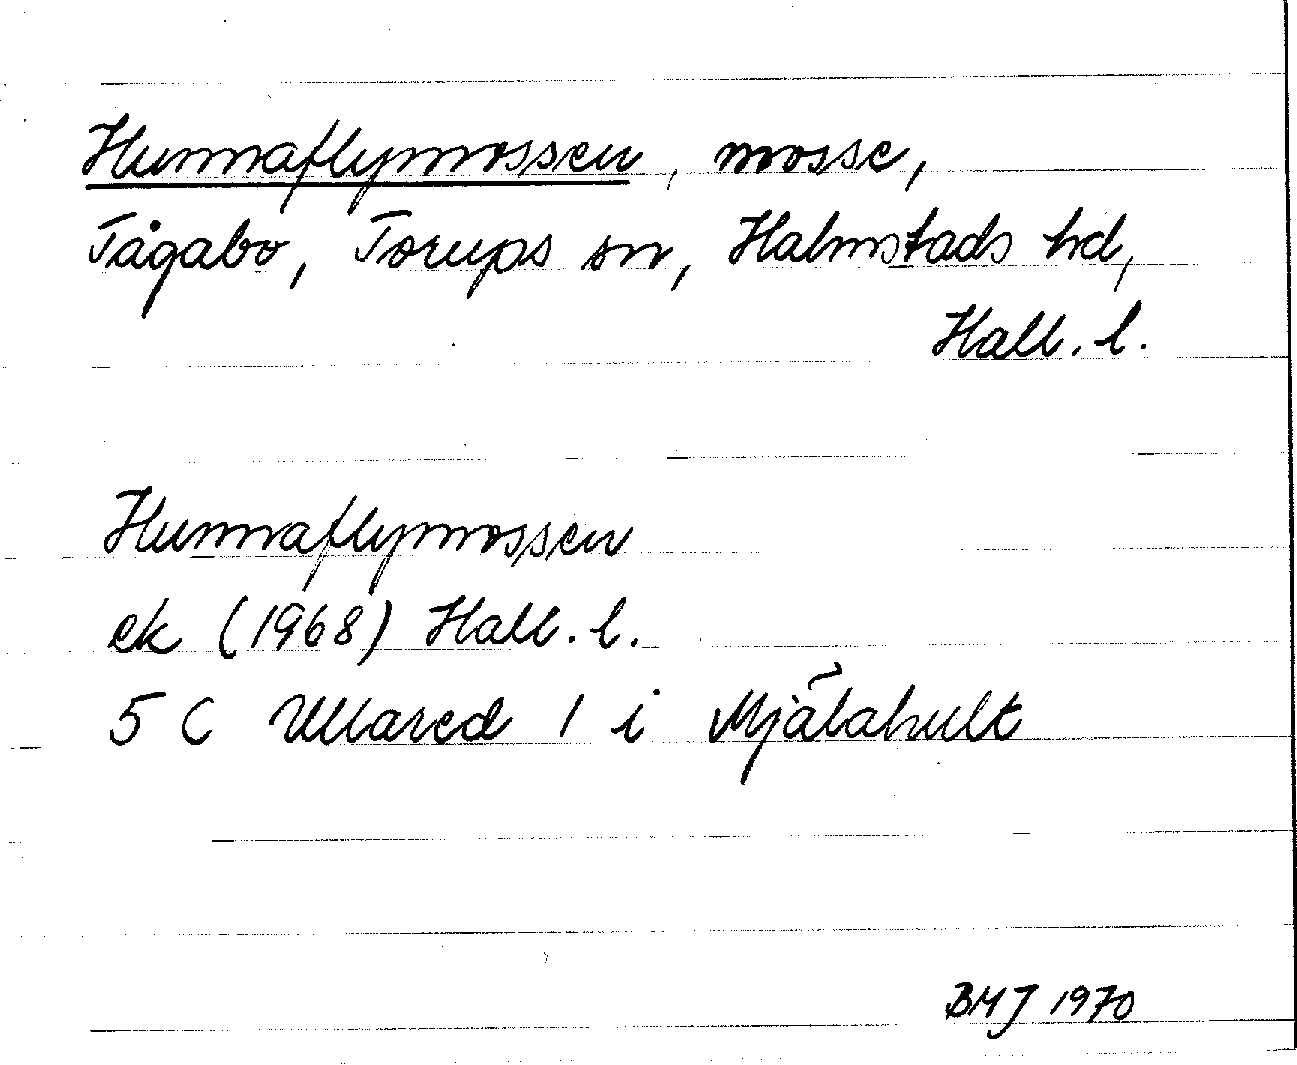 Hunnaflymossen, mosse,
Tågabo, Torups sn, Halmstads hd,
Hall. l.
Hunnaflymossen
ek (1968) Hall. l.
5 C Ullared 1 i Mjälahult
BMJ 1970